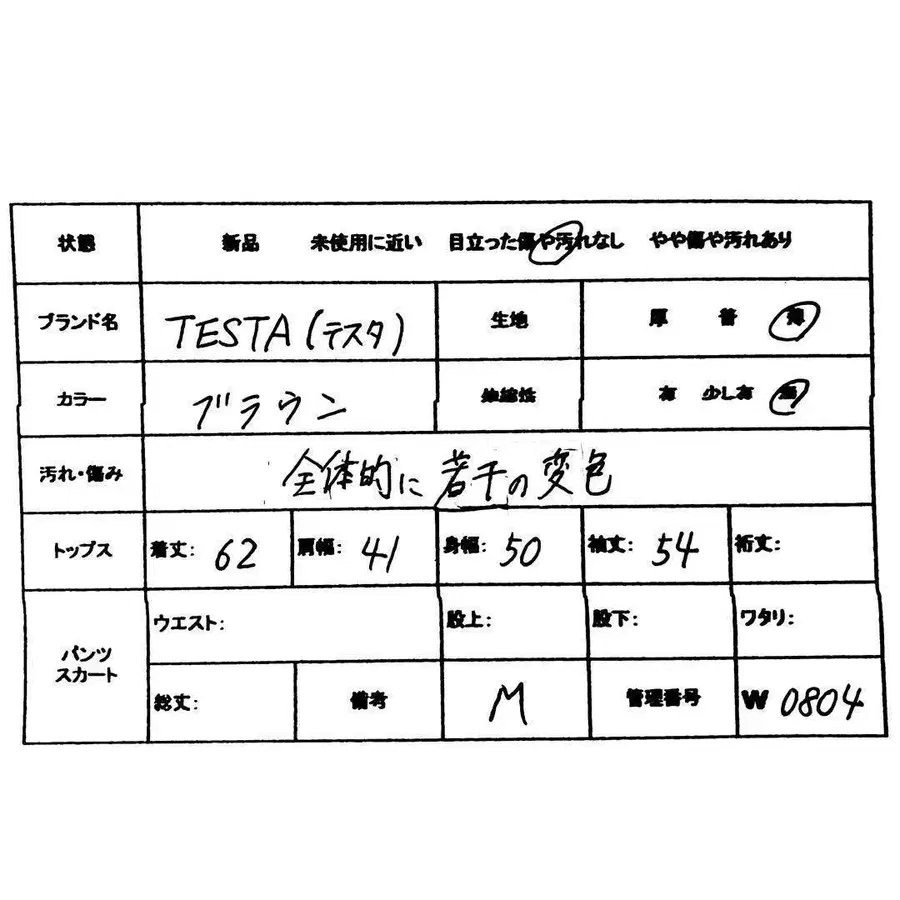 状態 新品 未使用に近い 目立った傷や汚れなし やや傷や汚れあり
ブランド名 TESTA(テスタ) 生地 厚 普 薄
カラー ブラウン 伸縮性 有 少し有 無
汚れ・傷み 全体的に若干の変色
トップス 着丈: 62 肩幅: 41 身幅: 50 袖丈: 54 裄丈:
パンツ スカート ウエスト: 股上: 股下: ワタリ:
総丈: 備考 M 管理番号 W 0804